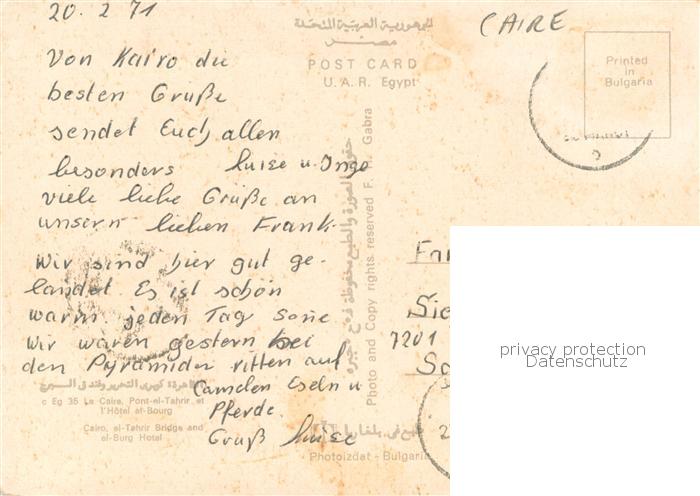 20. 2 71
Von Kairo die
besten Grüße
sendet Euch allen
besonders Luise u. Ingo
viele liebe Grüße an
unsern lieben Frank.
Wir sind hier gut ge-
landet. Es ist schön
warm jeden Tag Sonne
Wir waren gestern bei
den Pyramiden ritten auf
Camelen Eseln u
Pferde.
Gruß Luise
الجمهورية العربية المتحدة
مصر
POST CARD
U.A.R. Egypt
CAIRE
Printed
in
Bulgaria
Photo and Copy rights reserved F. H. Gabra
7201
privacy protection
Datenschutz
c Eg 35 Le Caire, Pont-el-Tahrir et
l'Hôtel el-Bourg
Cairo, el-Tahrir Bridge and
el-Burg Hotel
طبع في بلغاريا
Photoizdat - Bulgaria